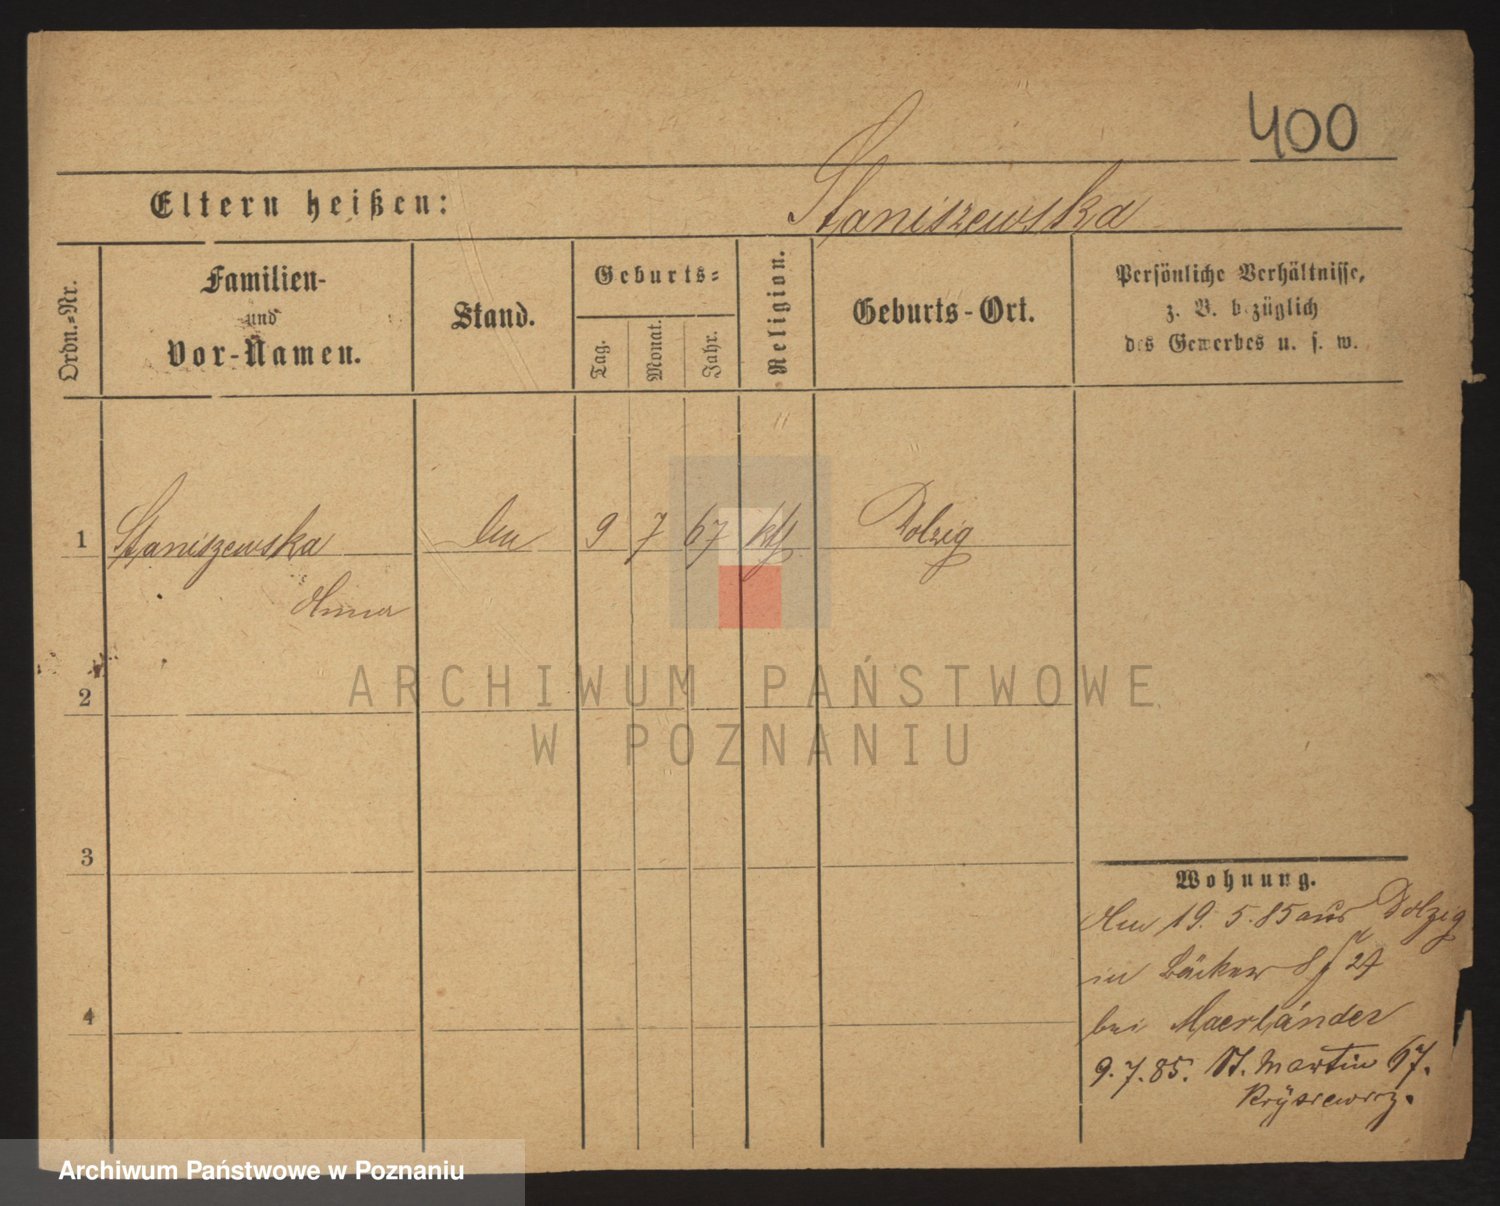 400
Eltern heißen:
Staniszewska
Ordn.-Nr.
Familien-
und
Vor-Namen.
Stand.
Geburts-
Tag.
Monat.
Jahr.
Religion.
Geburts-Ort.
Persönliche Verhältnisse,
z. B. bezüglich
des Gewerbes u. s. w.
1 Staniszewska 9 7 67 kth Dolzig
Anna
2
3
4
ARCHIWUM PAŃSTWOWE
W POZNANIU
Wohnung.
Am 19. 5. 85 aus Dolzig
in Bäcker 24
bei Maerländer
9. 7. 85. St. Martin 67.
Archiwum Państwowe w Poznaniu